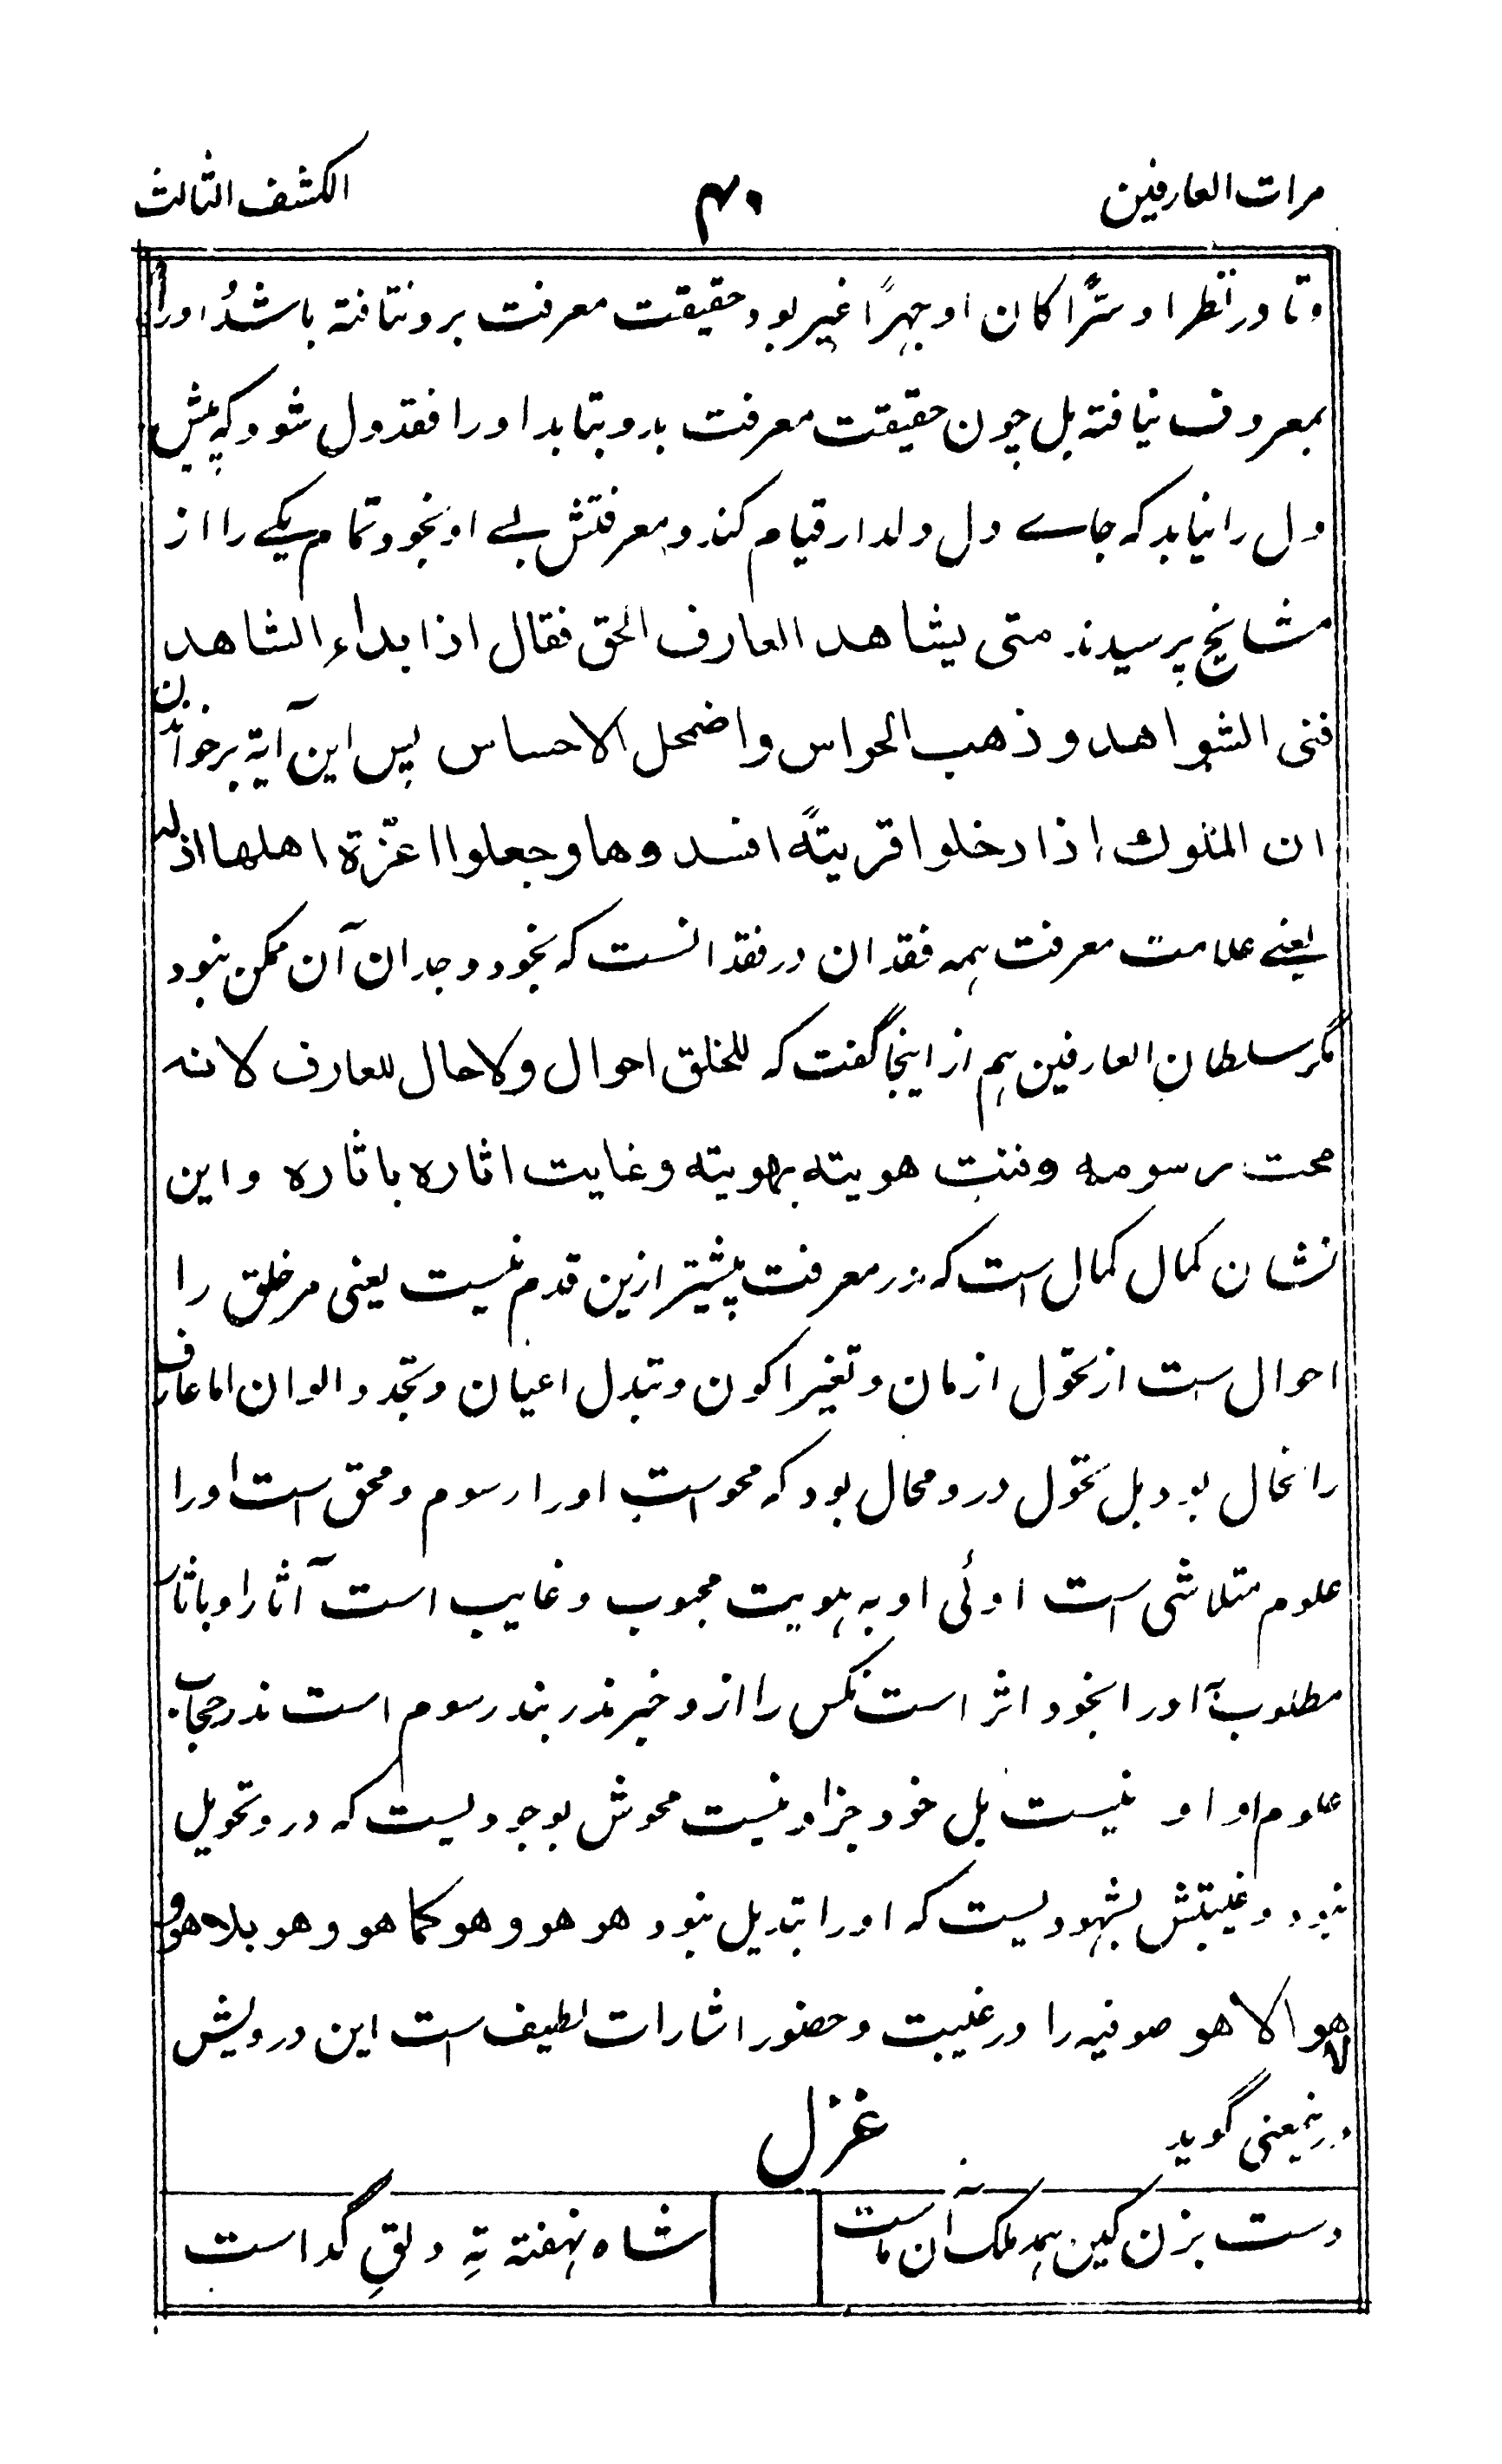 مرات العارفین ۴۰ الکشف الثالث
وتا در نظر او سرًّا کان او جهرًا غیر بود حقیقت معرفت برو نتافته باشد و او را
بمعروف نیافته بل چون حقیقت معرفت بدو بتابد او را فقد دل شود که پیش
دل را نیابد که جاے دل دلدار قیام کند و معرفتش بے او بخود تمام یکے را از
مشایخ پرسیدند متی یشاهد العارف الحق فقال اذا بداء الشاهد
فنی الشواهد و ذهب الحواس و اضمحل الاحساس پس این آیة برخواندن
ان الملوك اذا دخلوا قریتًه افسدوها وجعلوا اعزّة اهلها اذلة
یعنے علامت معرفت همه فقدان در فقدانست که بخود وجدان آن ممکن نبود
مگر سلطان العارفین هم از اینجا گفت که للخلق احوال ولا حال للعارف لانه
محت رسومه وفنت هویته بهویته وغایت اثاره باثاره و این
نشان کمال کمال است که در معرفت پیشتر ازین قدم نیست یعنی مر خلق را
احوال ست از تحول ازمان و تغیر اکون و تبدل اعیان و تجدد الوان اما عارف
را نحال بود بل تحول درو محال بود که محو است او را رسوم و محق است او را
علوم متلاشی ست اوئی او به هویت محبوب و غایب است آثار او باثار
مطلوب آ او را بخود اثر است نکس را ازو خبر ندر بند رسوم است ندر حجاب
علوم او او نیست بل خود جز او نیست محوش بوجودیست که درو تحویل
نبود و غیبتش بشهودیست که او را تبدیل نبود هو هو و هو کما هو و هو بلا هو و
لا هو الا هو صوفیه را در غیبت و حضور اشارات لطیف ست این درویش
درینمعنی گوید غزل
دست بزن کین همه ملک آن ماست شاه نهفته تهِ دلقِ گداست